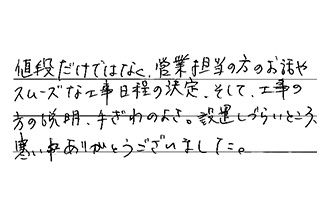 値段だけではなく、営業担当の方のお話や
スムーズな工事日程の決定、そして、工事の
方の説明、手ぎわのよさ。設置しづらいところ、
寒い中ありがとうございました。